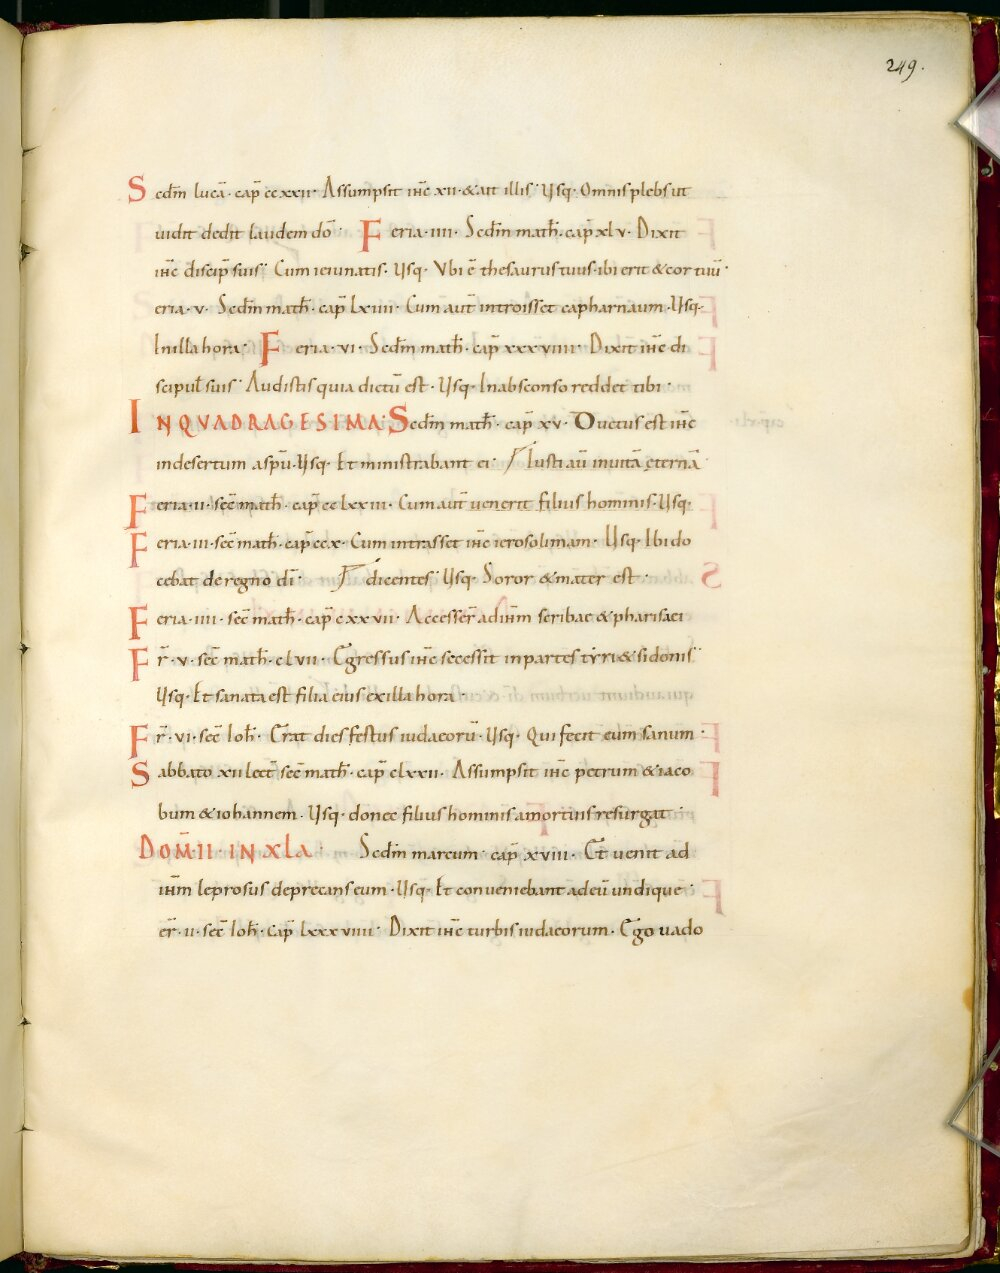 249.
Secdm lucā· cap̄ ccxxii· Assumpsit ihc̄ xii·&ait illis· Usq· Omnis plebs ut
uidit dedit laudem dō· Feria·iiii· Secdm math̄·cap̄ xlv· Dixit
ihc̄ discip̄ suis· Cum ieiunatis· Usq· Ubi ē thesaurus tuus·ibi erit &cor tuū·
eria·v· Secdm math̄· cap̄ lxiiii· Cum aut̄ introisset capharnaum·Usq·
In illa hora· Feria·vi· Secdm math̄· cap̄ xxxviiii· Dixit ihc̄ di
scipul̄ suis· Audistis quia dictū est· Usq· In absconso reddet tibi·
IN QUADRAGESIMA· Secdm math̄· cap̄ xv· Ductus est ihc̄
in desertum a sp̄u·Usq· Et ministrabant ei· Iusti aū in uitā ęternā
Feria·ii· sec̄ math̄· cap̄ cclxxiii· Cum aut̄ uenerit filius hominis·Usq·
Feria·iii·sec̄ math̄· cap̄ ccx· Cum intrasset ihc̄ ierosolimam· Usq· Ibi do
cebat de regno dī· dicentes· Usq· Soror &mater est·
Feria·iiii· sec̄ math̄· cap̄ cxxvii· Accesser̄ ad ihm̄ scribae &pharisaei
Fr̄·v·sec̄ math̄·clvii· Egressus ihc̄ secessit in partes tyri&sidonis·
Usq· Et sanata est filia eius ex illa hora·
Fr̄·vi·sec̄ Ioh̄· Erat dies festus iudaeorū·Usq· Qui fecit eum sanum·
Sabbato xii lect̄ sec̄ math̄· cap̄ clxxii· Assumpsit ihc̄ petrum &iaco
bum &iohannem· Usq· donec filius hominis a mortuis resurgat·
DOM̄ II· IN XLA· Secdm marcum· cap̄ xviii· Et uenit ad
ihm̄ leprosus deprecans eum·Usq· Et conueniebant ad eū undique·
er̄·ii·sec̄ Ioh̄·cap̄ lxxxviiii· Dixit ihc̄ turbis iudaeorum· Ego uado